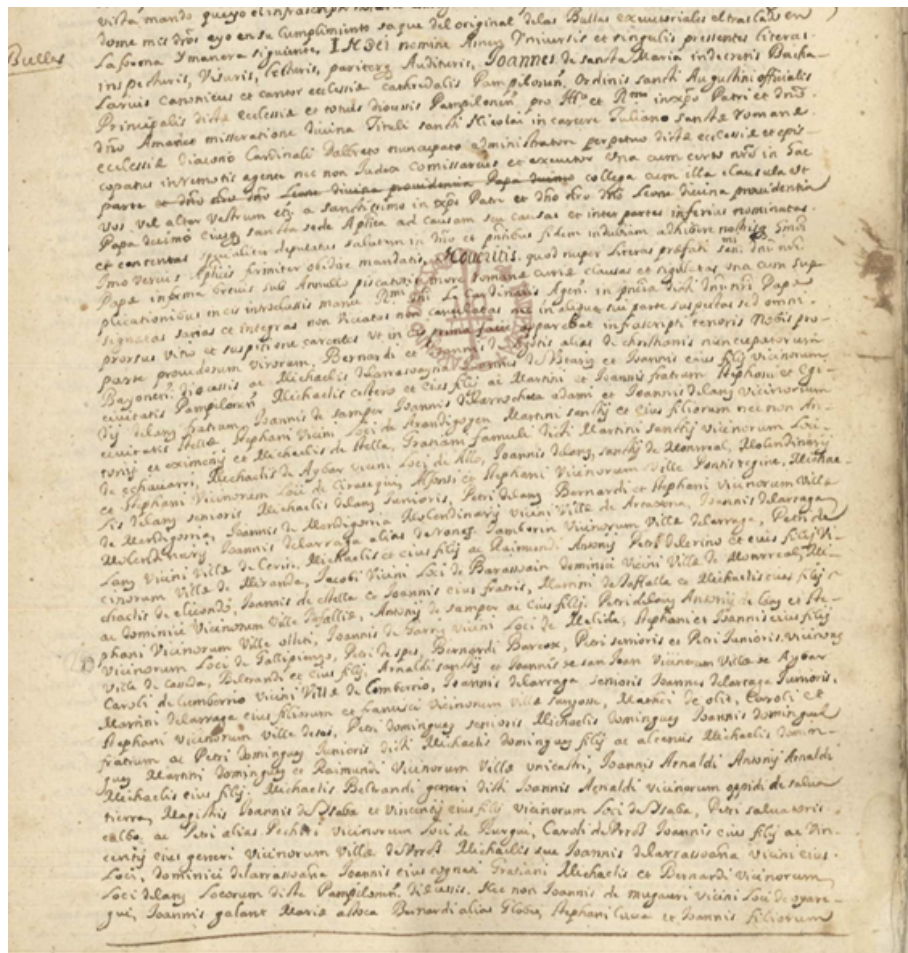 vista mando que yo el infrascripto
dome mis dros eyo en su cumplimiento saque del original delas Bullas executoriales el traslado en
Bullas
la forma y manera siguiente, IN Dei nomine Amen Universis et singulis presentes literas
inspecturis, Visuris, lecturis, pariterq Audituris, Joannes de santa Maria in decretis Bacha-
larius Canonicus et cantor ecclesiæ cathedralis Pampilonen̄. Ordinis sancti Augustini officialis
Principalis dictæ ecclesiæ et totius diocesis Pampilonen̄ pro Illo et Rmo in xpo Patri et dno
dño Amaneo misseratione divina Tituli sancti Nicolai in carcere Tuliano sanctæ Romanæ
ecclesiæ Diacono Cardinali Dalbreto nuncupato administratore perpetuo dictæ ecclesiæ et epis-
copatus in remotis agente nec non Judex Comissarius et executor Una cum certo nro in hac
parte et dño nro dño Leone divina providencia Papa decimo collega cum illa clausula Ut
vos vel alter Vestrum etc a sanctissimo in xpo Patre et dño nro dño Leone divina providentia
Papa decimo eiusq sancta sede Aplica ad causam seu causas et inter partes inferius nominatas
et contentas specialiter deputatus salutem in dño et pntibus fidem indubiam adhibere nostris
imo verius Aplicis firmiter obedire mandatis, Noveritis. quod nuper literas præfati smi dni nri
Papæ in forma brevis sub Annullo piscatoris more romanæ curiæ clausas et sigillatas una cum sup
plicationibus in eis introclusis manu Rmi dni L. Cardinalis Agen. in pncia dicti dni nri Papæ
signatas sanas et integras non viciatas non cancellatas nec in aliqua sui parte suspectas sed omni
prorsus vitio et suspicione carentes ut in eis prima facie apparebat infrascripti tenoris Nobis pro
parte providorum virorum, Bernardi et Joannis, de Agotis alias de christianis nuncupatorum
Bayonen̄. diocessis ac Michaelis delarrasoayna Joannis de Bearn et Joannis eius filij vicinorum
civitatis Pampilonen̄ Michaelis cestero et eius filij ac Martini et Joannis fratrum Stephani et Egi-
dij delany fratrum, Joannis de samper Joannis delarrocheta adami et Joannis delany vicinorum
civitatis Stellæ Stephani Vicini Loci de Arandigoyen Martini sanctij et eius filiorum nec non An-
tonij et eximenij et Michaelis de stella, Gratiani famuli dicti Martini sanctij vicinorum Loci
de echavarri, Michaelis de Aybar vicini Loci de Allo, Joannis delany, sanctij de Monreal, Molendinarij
et Stephani Vicinorum Loci de Cirauqui, Alfonsi et Stephani Vicinorum Villæ Pontis reginæ, Michae-
lis delany senioris Michaelis delany Junioris, Petri delany Bernardi et Stephani vicinorum Villæ
de Mendigorria, Joannis de Mendigorria Molendinarij Vicini Villæ de Artaxona, Joannis delarraga
Molendinarij Joannis delarraga alias de Tamborin Vicinorum Villæ delarraga, Petri de
Lany Vicini Villæ de Lerin, Michaelis et eius filij ac Raimundi Antonij Petri delerino et eius filij Vi-
cinorum Villæ de Miranda, Jacobi Vicini Loci de Barasoain dominici vicini Villæ de Monrreal, Mi-
chaelis de elicondo, Joannis de stella et Joannis eius fratris, Martini de Taffalla et Michaelis eius filij
ac dominici Vicinorum Villæ Tafalliæ, Antonij de Samper ac eius filij, Petri delany Antonij de lany et Ste-
phani Vicinorum Villæ olliti, Joannis de Garry vicini Loci de Melida, Stephani et Joannis eius filij
Vicinorum Loci de Gallipienzo, Petri de spes, Bernardi Barcox, Petri senioris et Petri Junioris, vicinorum
Villæ de Casseda, Beltrandi et eius filij Arnaldi sanctij et Joannis de san Joan Vicinorum Villæ de Aybar
Caroli de lumberrio vicini Villæ de Lomberrio, Joannis delarraga senioris Joannis delarraga Junioris,
Martini delarraga eius filiorum et Vicinorum Villæ sanguossæ, Mathei de olit, Caroli et
Stephani vicinorum Villæ desos, Petri dominguez senioris Michaelis dominguez Joannis dominguez
fratrum ac Petri dominguez Junioris dicti Michaelis dominguez filij ac alterius Michaelis domin-
guez Martini dominguez et Raimundi Vicinorum Villæ unicastri, Joannis Arnaldi Antonij Arnaldi
Michaelis eius filij Michaelis Beltrandi generi dicti Joannis Arnaldi vicinorum oppidi de salva
tierra, Magistri Joannis de Ysaba et Vincentij eius filij vicinorum Loci de Ysaba, Petri salvatoris
calbo ac Petri alias Pechiri vicinorum Loci de Burgui, Caroli de Urros Joannis eius filij ac Vin-
centij eius generi vicinorum Villæ de Urros Michaelis sue Joannis delarrassoaña vicini eius.
Loci, dominici delarrasoaña Joannis eius cognati Gratiani Michaelis et Bernardi vicinorum
Loci delany Locorum dictæ Pampilonen̄ diocessis. Nec non Joannis de mugaurri vicini Loci de oyare-
gui, Joannis galant Mariæ attoca Bernardi alias Globis, Stephani Luca et Joannis filiorum